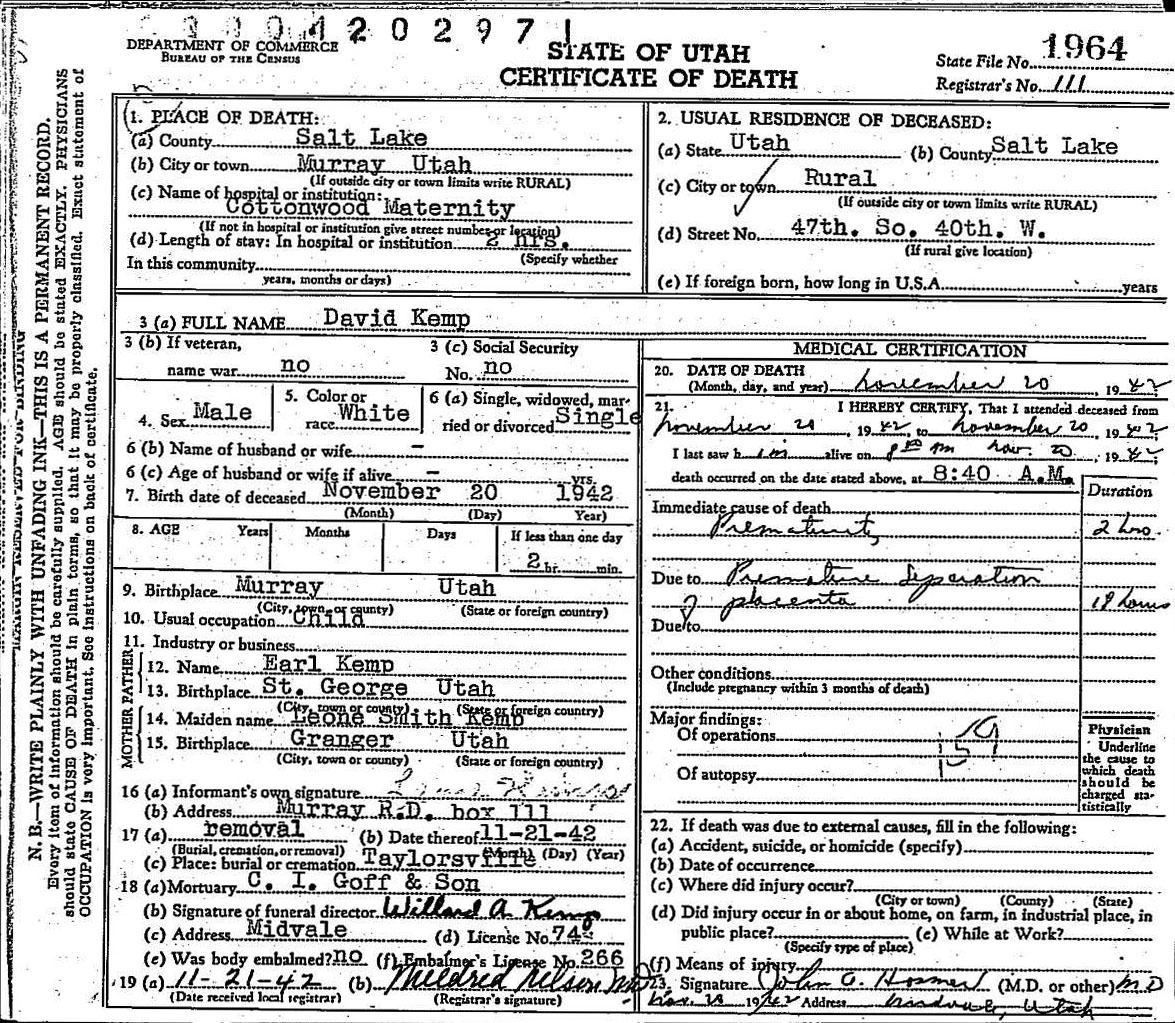 420297
DEPARTMENT OF COMMERCE
BUREAU OF THE CENSUS
STATE OF UTAH
CERTIFICATE OF DEATH
State File No. 1964
Registrar's No. 111
N. B.—WRITE PLAINLY WITH UNFADING INK—THIS IS A PERMANENT RECORD.
Every item of information should be carefully supplied. AGE should be stated EXACTLY. PHYSICIANS
should state CAUSE OF DEATH in plain terms, so that it may be properly classified. Exact statement of
OCCUPATION is very important. See instructions on back of certificate.
1. PLACE OF DEATH:
(a) County Salt Lake
(b) City or town Murray Utah
(If outside city or town limits write RURAL)
(c) Name of hospital or institution:
Cottonwood Maternity
(If not in hospital or institution give street number or location)
(d) Length of stay: In hospital or institution 2 hrs.
(Specify whether
In this community
years, months or days)
2. USUAL RESIDENCE OF DECEASED:
(a) State Utah (b) County Salt Lake
(c) City or town Rural
(If outside city or town limits write RURAL)
(d) Street No. 47th. So. 40th. W.
(If rural give location)
(e) If foreign born, how long in U.S.A. years
3 (a) FULL NAME David Kemp
3 (b) If veteran, 3 (c) Social Security
name war no No. no
4. Sex Male 5. Color or race White 6 (a) Single, widowed, married or divorced Single
6 (b) Name of husband or wife –
6 (c) Age of husband or wife if alive – yrs.
7. Birth date of deceased November 20 1942
(Month) (Day) Year)
8. AGE Years Months Days If less than one day
2 hr. min.
9. Birthplace Murray Utah
(City, town or county) (State or foreign country)
10. Usual occupation Child
11. Industry or business
FATHER
12. Name Earl Kemp
13. Birthplace St. George Utah
(City, town or county) (State or foreign country)
MOTHER
14. Maiden name Leone Smith Kemp
15. Birthplace Granger Utah
(City, town or county) (State or foreign country)
16 (a) Informant's own signature
(b) Address Murray R.D. box 111
17 (a) removal (b) Date thereof 11-21-42
(Burial, cremation, or removal) (Month) (Day) (Year)
(c) Place: burial or cremation Taylorsville
18 (a) Mortuary C. I. Goff & Son
(b) Signature of funeral director Willard A. Kemp
(c) Address Midvale (d) License No. 74
(e) Was body embalmed? no (f) Embalmer's License No. 266
19 (a) 11-21-42 (b) Mildred Nelson
(Date received local registrar) (Registrar's signature)
MEDICAL CERTIFICATION
20. DATE OF DEATH
(Month, day, and year) November 20, 1942
21. I HEREBY CERTIFY, That I attended deceased from
November 20, 1942, to November 20, 1942
I last saw him alive on Nov. 20, 1942
death occurred on the date stated above, at 8:40 A.M.
Duration
Immediate cause of death
Prematurity 2 hrs.
Due to Premature Separation
of placenta 18 hours
Due to
Other conditions
(Include pregnancy within 3 months of death)
Major findings:
Of operations
Of autopsy
159
Physician
Underline
the cause to
which death
should be
charged sta-
tistically
22. If death was due to external causes, fill in the following:
(a) Accident, suicide, or homicide (specify)
(b) Date of occurrence
(c) Where did injury occur?
(City or town) (County) (State)
(d) Did injury occur in or about home, on farm, in industrial place, in
public place? (e) While at Work?
(Specify type of place)
(f) Means of injury
23. Signature John O. Hosmer (M.D. or other) M D
Nov. 1942 Address Midvale, Utah